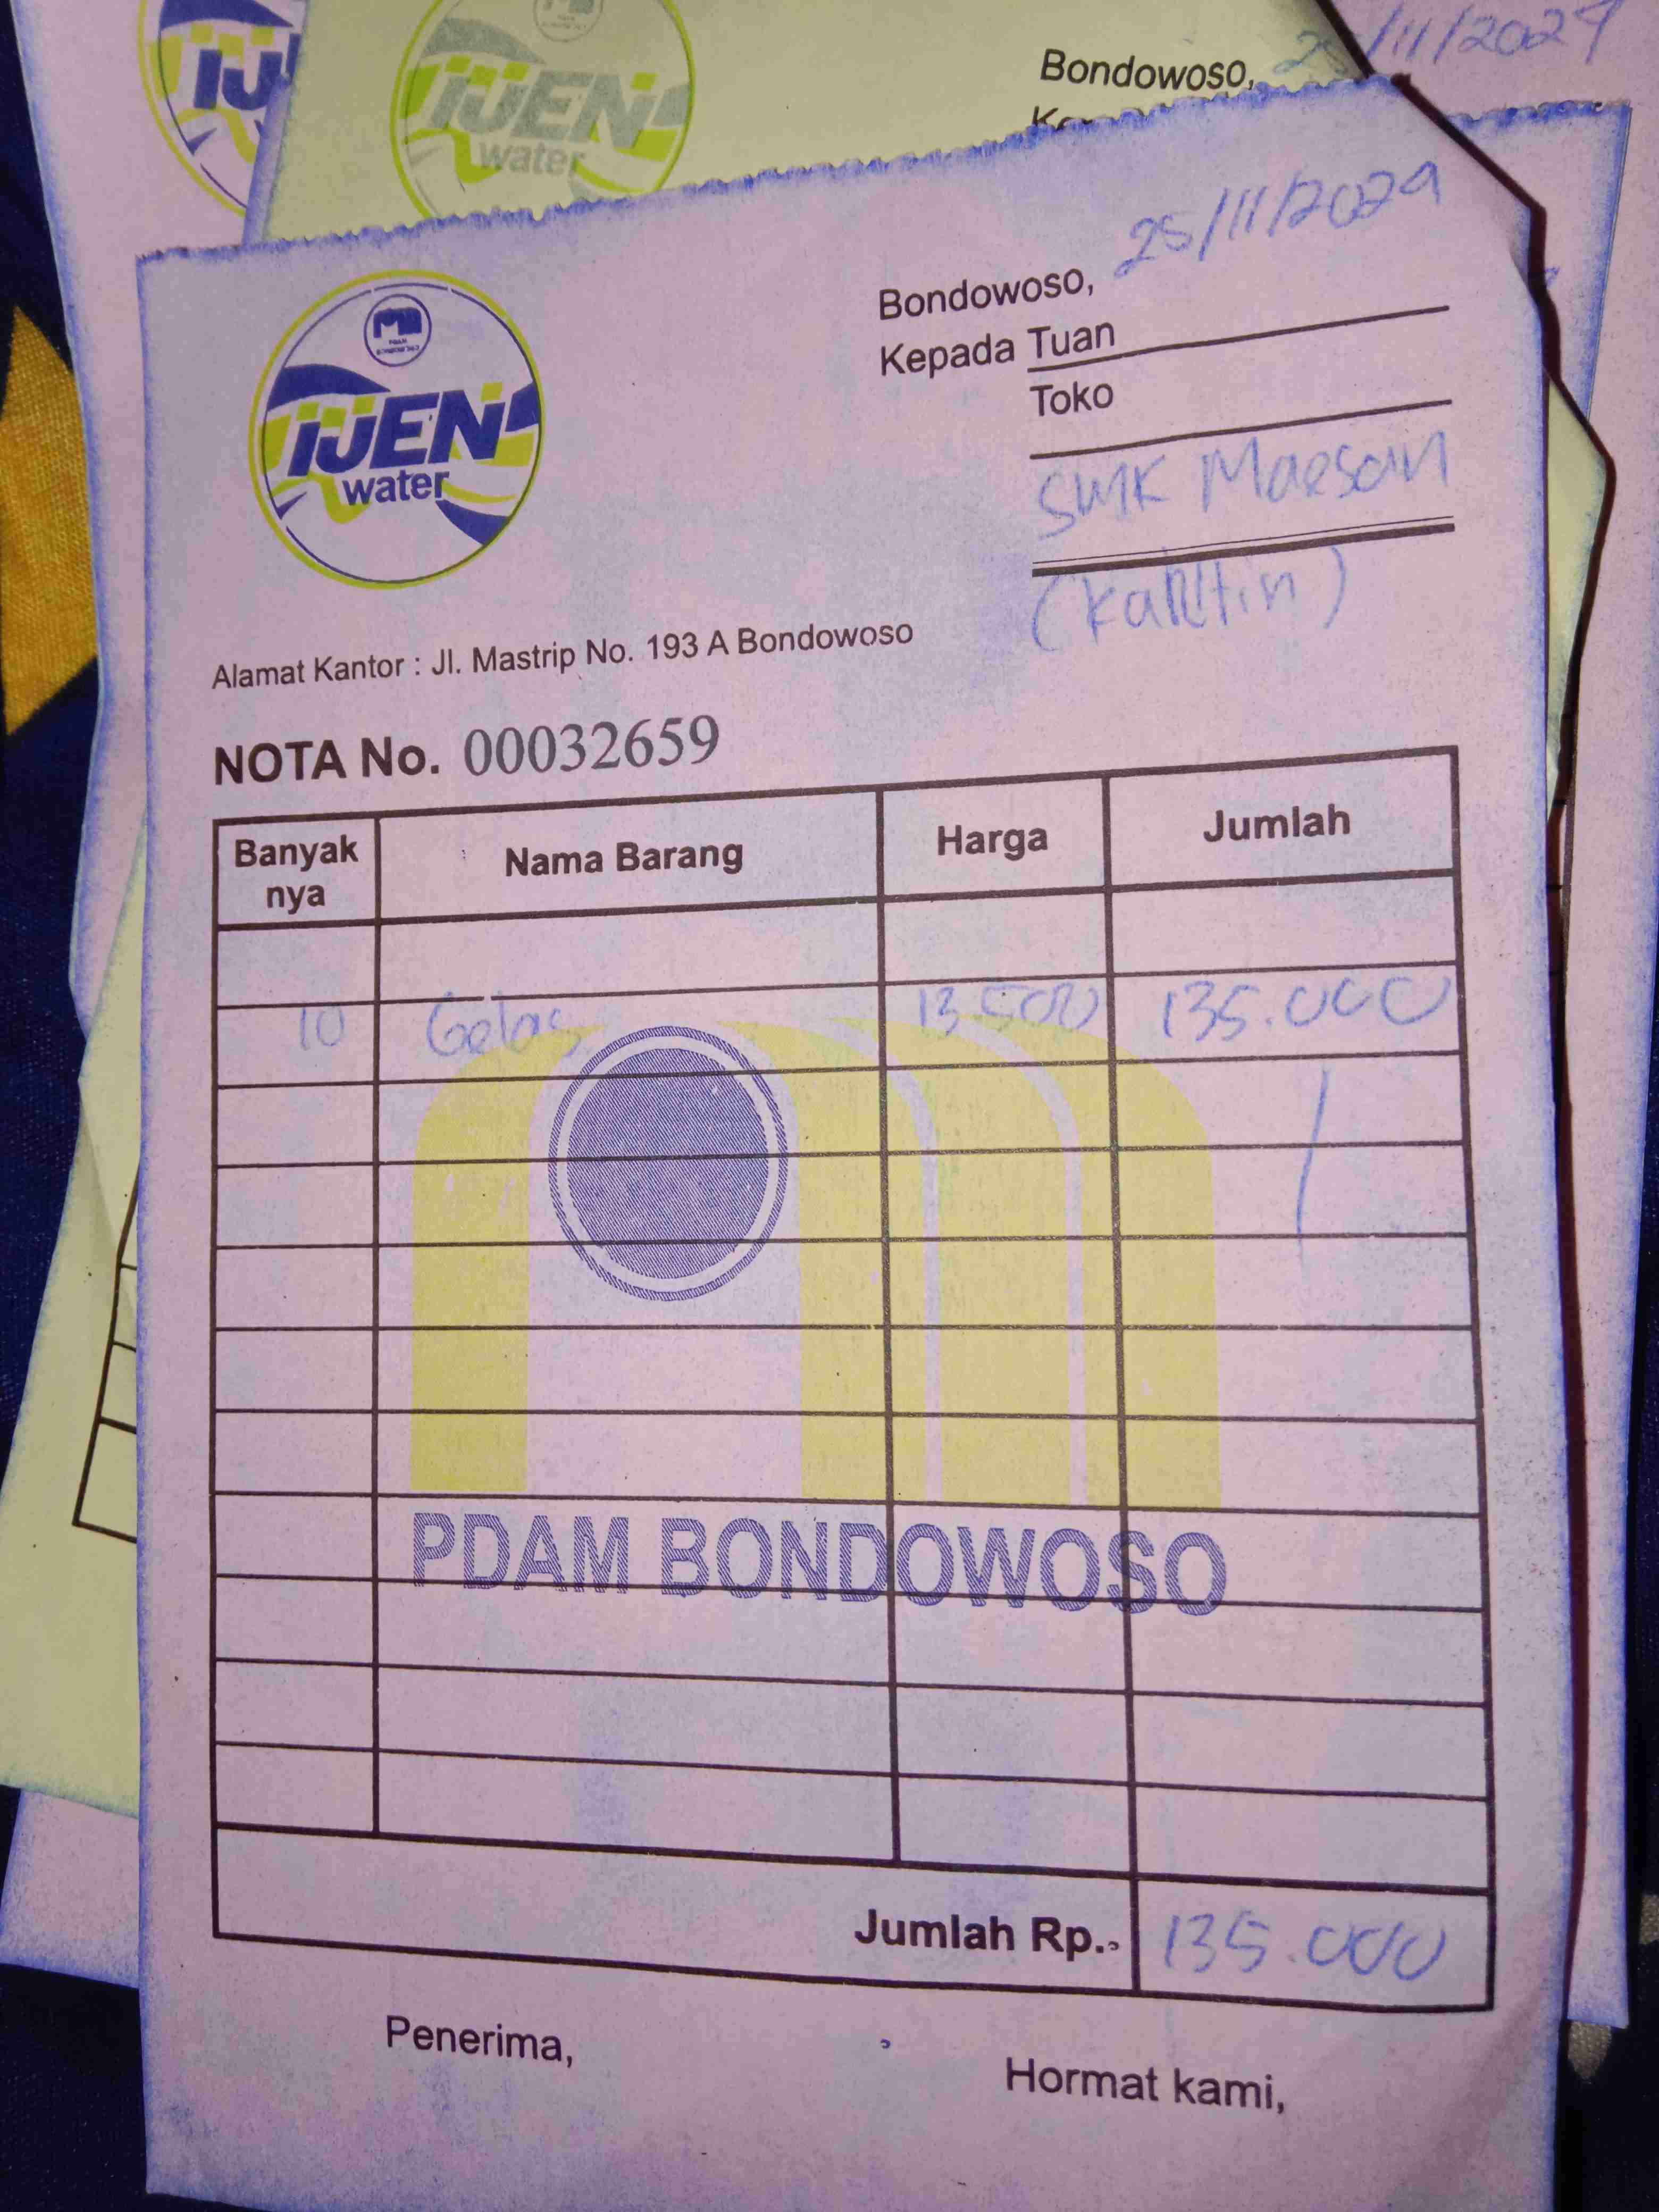 IJEN
water
Bondowoso, /11/2024
Bondowoso, 25/11/2024
Kepada Tuan
Toko
SMK Maesan
(kantin)
IJEN
water
Alamat Kantor : Jl. Mastrip No. 193 A Bondowoso
NOTA No. 00032659
Banyak nya Nama Barang Harga Jumlah
10 Gelas 13.500 135.000
PDAM BONDOWOSO
Jumlah Rp. 135.000
Penerima,
Hormat kami,